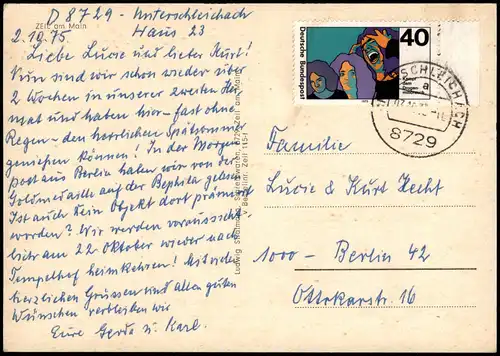 D 8729 - Unterschleichach
Haus 23
ZEIL am Main
2.10.75
Liebe Lucie und lieber Kurt!
Nun sind wir schon wieder über
2 Wochen in unserer zweiten Hei-
mat und haben hier - fast ohne
Regen - den herrlichen Spätsommer
genießen können! In der Morgen-
post aus Berlin haben wir von der
Goldmedaille auf der Bephila gelesen.
Ist auch Dein Objekt dort prämiert
worden? Wir werden voraussicht-
lich am 22 Oktober wieder nach
Tempelhof heimkehren! Mit vielen
herzlichen Grüssen und allen guten
Wünschen verbleiben wir
Eure Gerda u. Karl.
Ludwig Spielwaren, Zeil am Main
Bestellnr. Zeil 115-1
Deutsche Bundespost
40
SCHLEICHACH
a
8729
Familie
Lucie & Kurt Hecht
1000 - Berlin 42
Ottokarstr. 16